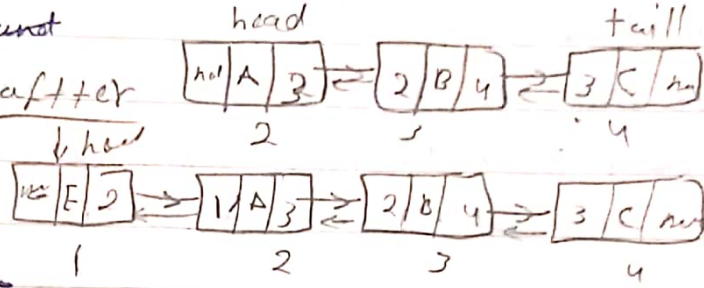 head taill
nul A 3 2 B 4 3 C nu
aftter
2 3 4
head
E 2 1 A 3 2 B 4 3 C nu
1 2 3 4